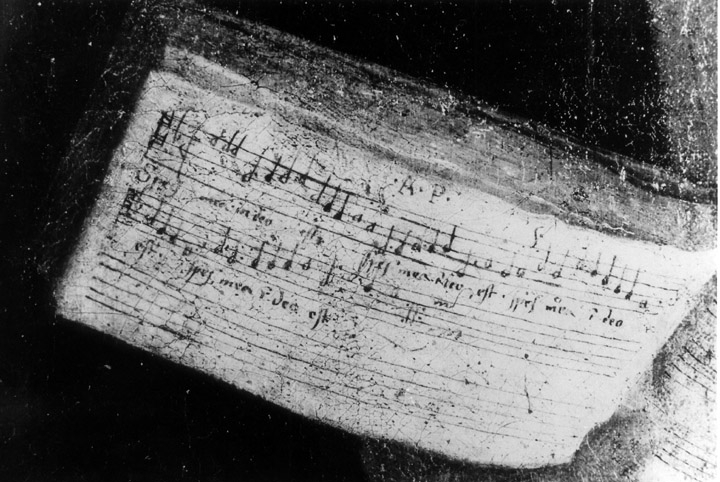 ·A·P·
Spes mea in deo est spes mea in deo est spes mea ī deo
est spes mea ī deo est